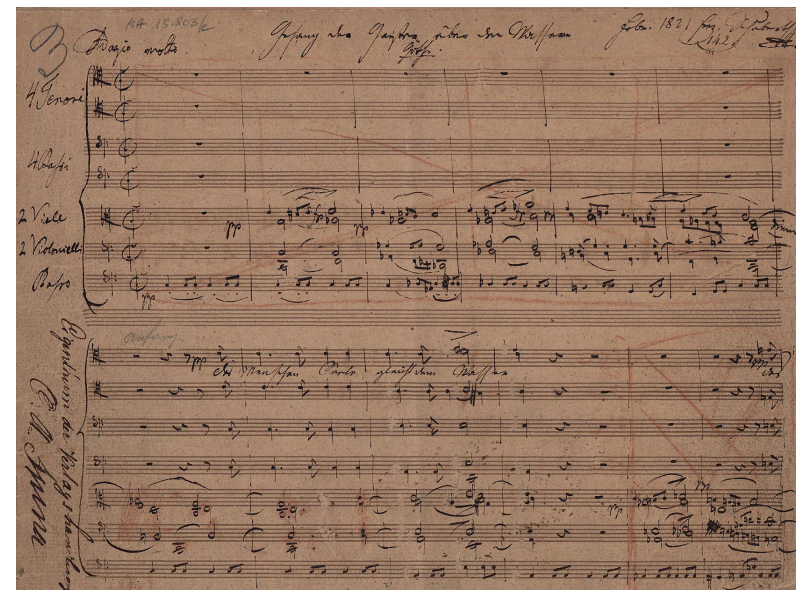 MA 15.803/c
Adagio molto. Gesang der Geister über den Wassern Febr. 1821 Frz. Schubert
Göthe.
142
4 Tenori
4 Bassi
2 Viole
pp pp pp
2 Violoncelli
Basso
pp
Anfang
pp Des Menschen Seele gleicht dem Wasser pp Des
pp
Eigenthum der Verlagshandlung
C. A. Spina